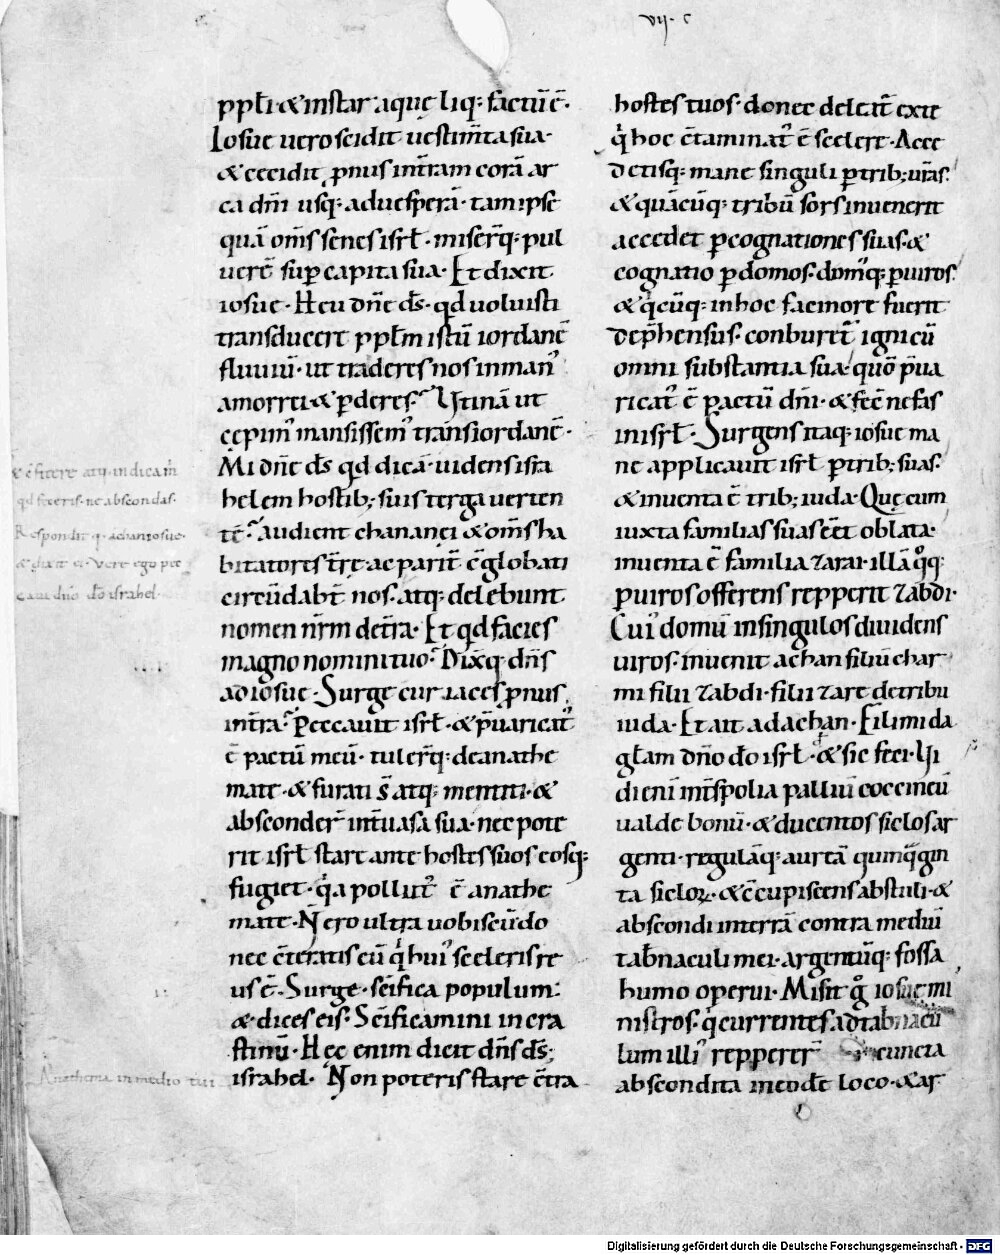 vij · c
ppłi · & instar aquę liq; factū ē ·
Iosue uero scidit uestim̄ta sua ·
& cecidit pnus int̄ram corā ar
ca dn̄i usq; ad uesperā · tam ipse
quā om̄s senes isrł · miserq; pul
uerē sup capita sua · Et dixit
iosue · Heu dn̄e ds̄ · qd uoluisti
transducere ppłm istū iordanē
fluuiū · ut traderes nos in man᾽
amorrei · & pderes · Utinā ut
cępim᾽ mansissem᾽ trans iordanē ·
Mi dn̄e ds̄ qd dicā · uidens isra
helem hostib; suis terga uerten
tē · audient chananęi & om̄s ha
bitatores t̄rę ac parit̄ c̄globati
circūdabt̄ nos · atq; delebunt
nomen nr̄m det̄ra · Et qd facies
magno nomini tuo · Dixq; dn̄s
ad iosue · Surge cur iaces pnus
int̄ra · Peccauit isrł · & p̄uaricat᾽
ē pactū meū · tulerq; de anathe
mate · & furati s̄ atq; mentiti · &
absconder̄ int̄ uasa sua · nec pote
rit isrł stare ante hostes suos eosq;
fugiet · qa pollut᾽ ē anathe
mate · N̄ ero ultra uobiscū do
nec c̄teratis eū q hui᾽ sceleris re
us ē · Surge · sc̄ifica populum ·
& dices eis · Sc̄ificamini in cra
stinū · Hęc enim dicit dn̄s ds̄
israhel · Non poteris stare c̄tra
hostes tuos · donec deleat᾽ ex te
q hoc c̄taminat᾽ ē scelere · Acce
detisq; mane singuli p trib; ur̄as ·
& quācūq; tribū sors inuenerit
accedet p cognationes suas · &
cognatio p domos · domq; p uiros ·
& qcūq; in hoc facinore fuerit
dep̄hensus · conburet᾽ igni cū
omni substantia sua · quō p̄ua
ricat᾽ ē pactū dn̄i · & fec̄ nefas
in isrł · Surgens itaq; iosue ma
ne applicauit isrł p trib; suas ·
& inuenta ē trib; iuda · Quę cum
iuxta familias suas eēt oblata ·
inuenta ē familia zarai · illā qq;
p uiros offerens repperit zabdi ·
Cui᾽ domū in singulos diuidens
uiros · inuenit achan filiū char
mi filii zabdi · filii zare de tribu
iuda · Et ait ad achan · Fili mi da
głam dn̄o do isrł · & sic feci · Ui
di eni int̄ spolia palliū coccineū
ualde bonū · & ducentos siclos ar
genti · regulāq; aureā quinqgin
ta siclor · & c̄cupiscens abstuli · &
abscondi in terrā contra mediū
tab̄naculi mei · argentūq; fossa
humo operui · Misit g iosue mi
nistros · q currentes ad tab̄nacu
lum illi᾽ repperer̄ cuncta
abscondita in eodē loco · & ar
& c̄fitere atq; indica m̄
qd feceris · ne abscondas ·
Respondit q · achan iosue ·
& dixit ei · Vere ego pec
caui dn̄o do israhel ·
Anathema in medio tui
Digitalisierung gefördert durch die Deutsche Forschungsgemeinschaft - DFG